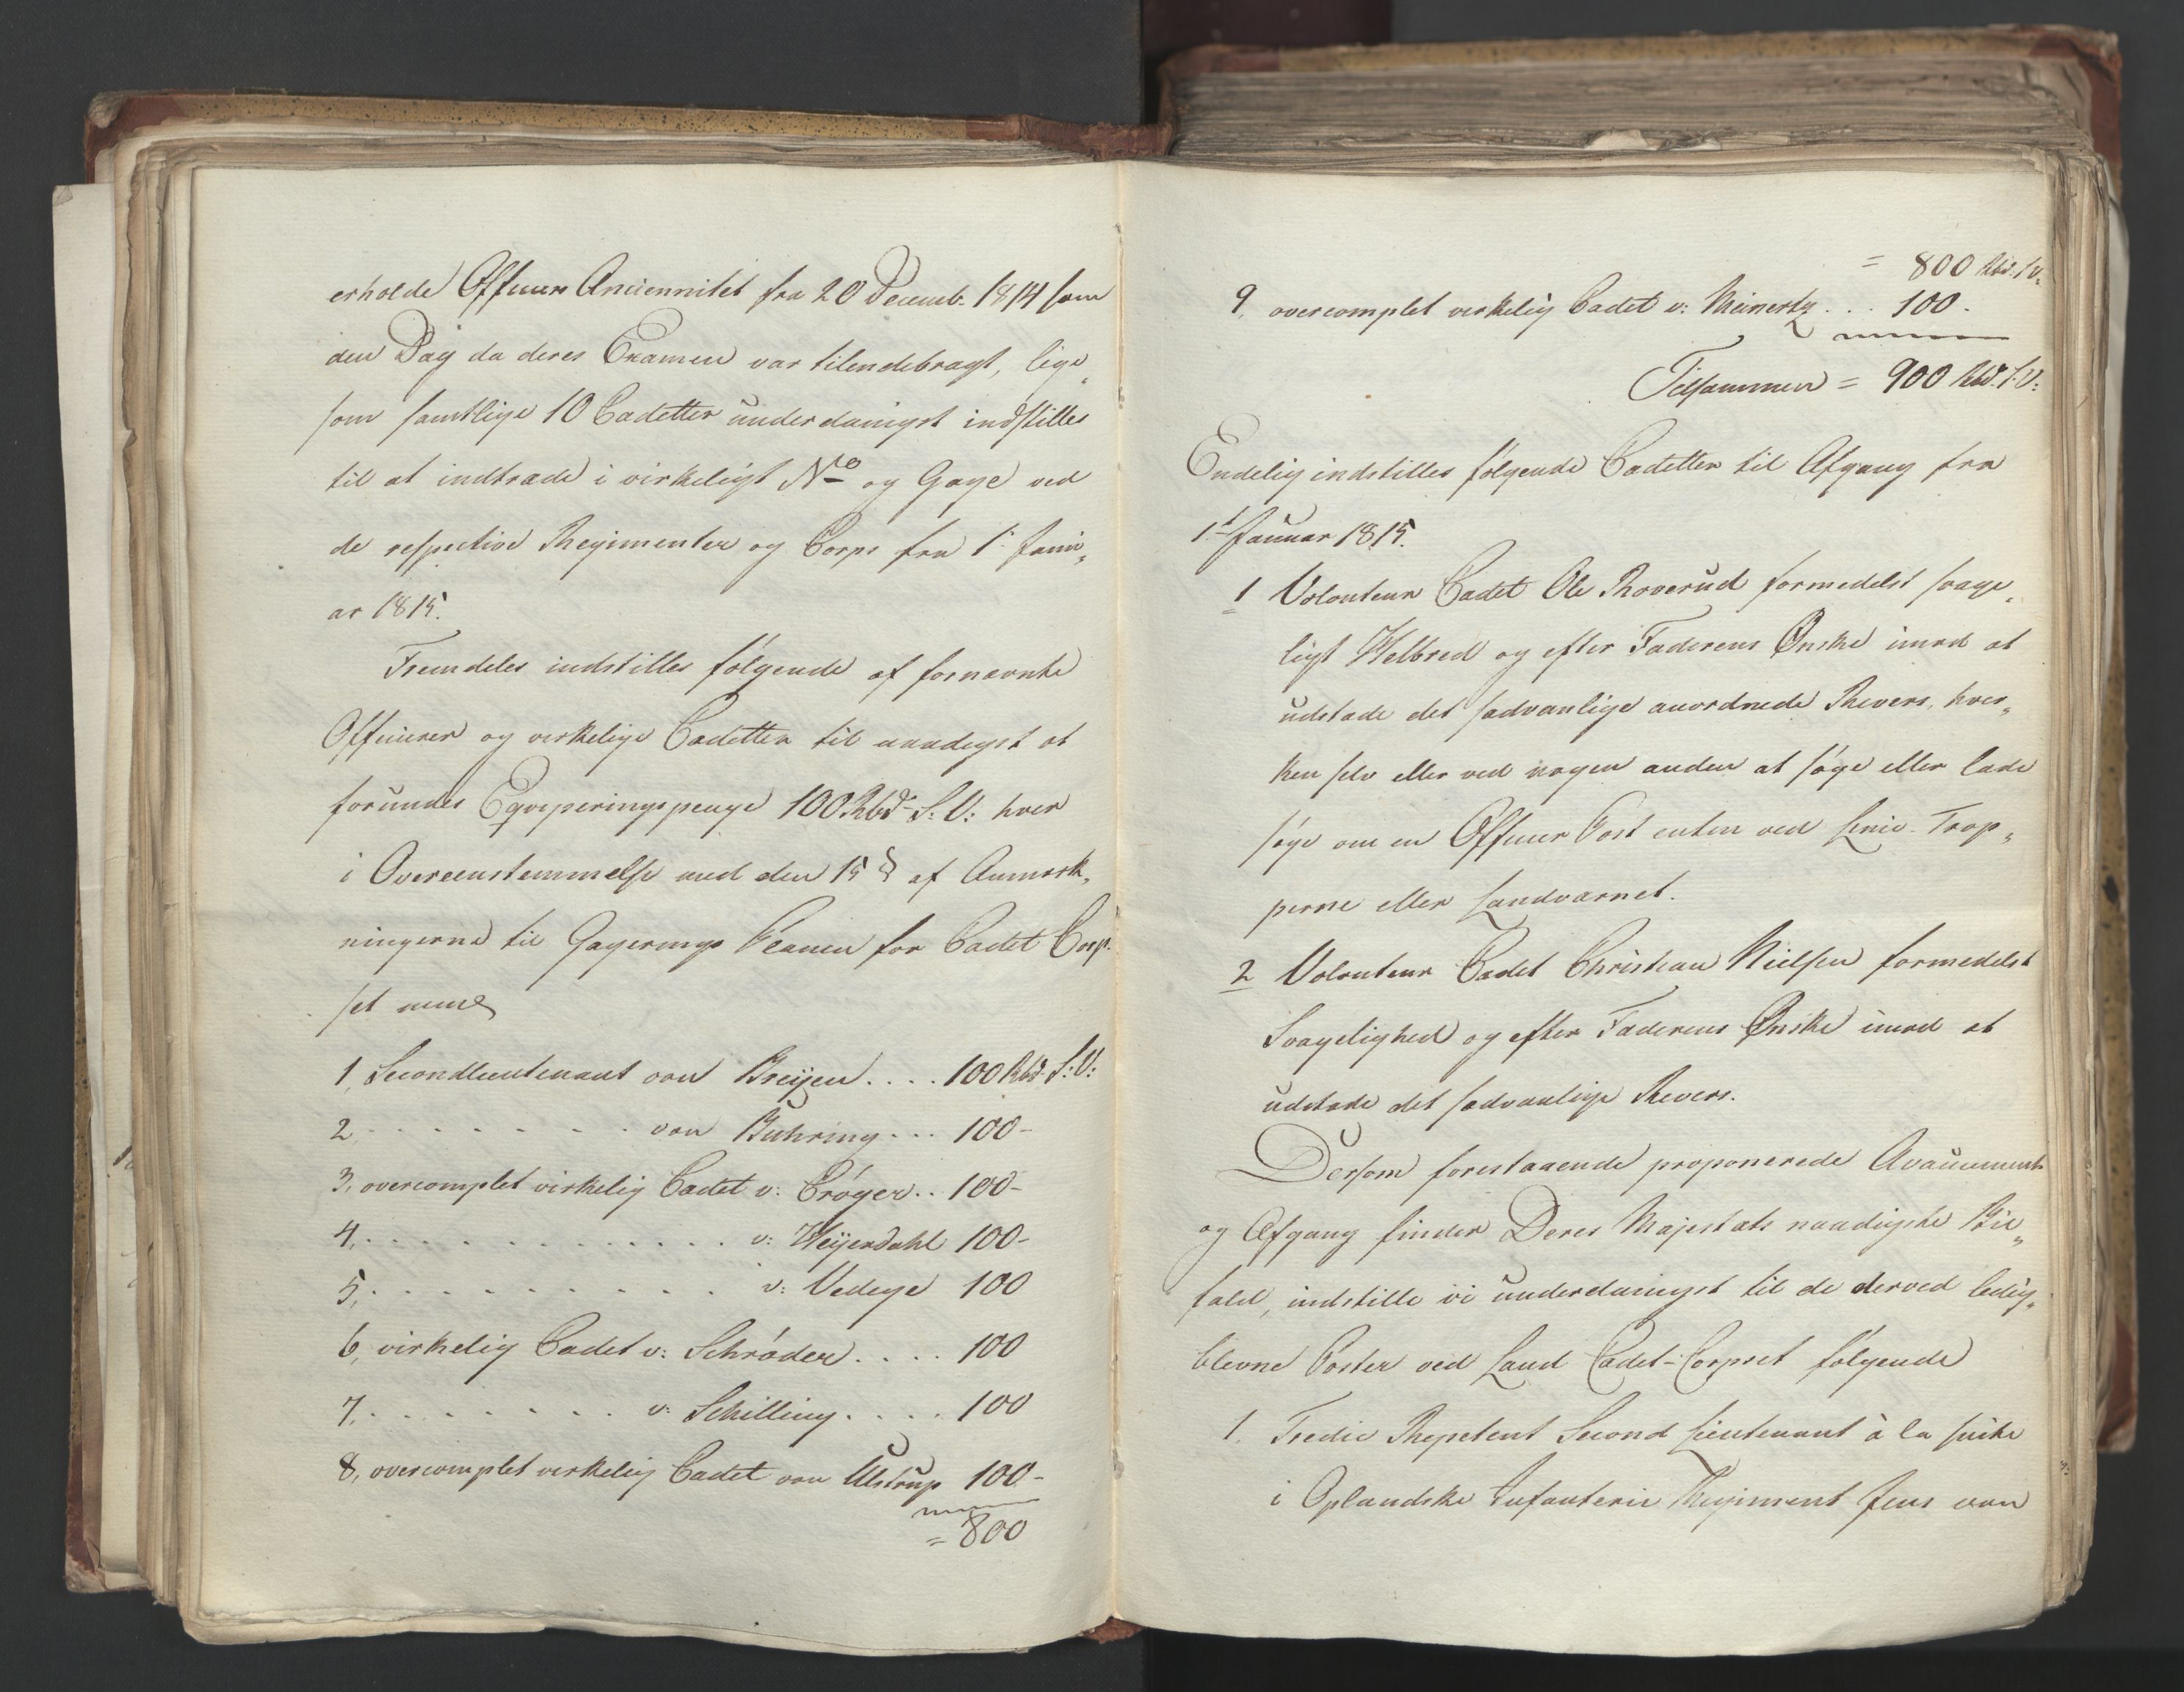 erholde Officiers Anciennitet fra 20 Decemb. 1814 som
den Dag da deres Examen var tilendebragt, lige„
som samtlige 10 Cadetter underdanigst indstilles
til at indtræde i virkeligt No og Gage ved
de respective Regimenter og Corps fra 1t Janu„
ar 1815.
Fremdeles indstilles følgende af fornævnte
Officierer og virkelige Cadetter til naadigst at
forundes Eqviperingspenge 100 Rbd. S: V: hver
i Overeenstemmelse med den 15 § af Anmærk„
ningerne til Gagerings Planen for Cadet Corp„
set nemlig
1, Secondlieutenant von Breijen .... 100 Rbd. S: V:
2, . . . . . . . . von Buhring ... 100 -
3, overcomplet virkelig Cadet v: Crøger .. 100 -
4, . . . . . . . . . . . . . v: Weijerdahl 100 -
5, . . . . . . . . . . . . v: Vedege 100
6, virkelig Cadet v: Schrøder .... 100
7, . . . . . . . . v: Schilling .... 100
8, overcomplet virkelig Cadet von Ulstrup 100 -
= 800
= 800 Rbd. S. V:
9, overcomplet virkelig Cadet v: Meinertz ... 100 -
Tilsammen = 900 Rbd. S: V:
Endelig indstilles følgende Cadetter til Afgang fra
1t Januar 1815.
1 Volonteur Cadet Ole Roverud formedelst svage„
ligt Helbred og efter Faderens Ønske imod at
udstæde det sædvanlige anordnede Revers, hver„
ken selv eller ved nogen anden at søge eller lade
søge om en Officier Post enten ved Linie-Trop„
perne eller Landværnet.
2 Volonteur Cadet Christian Nielsen formedelst
Svagelighed og efter Faderens Ønske imod at
udstæde det sædvanlige Revers.
Dersom forestaaende proponerede Avancement
og Afgang finder Deres Majestæts naadigste Bi„
fald, indstille vi underdanigst til de derved ledig„
blevne Poster ved Land Cadet-Corpset følgende
1. Tredie Repetent Second Lieutenant à la suite
i Oplandske Infanterie Regiment Jens von